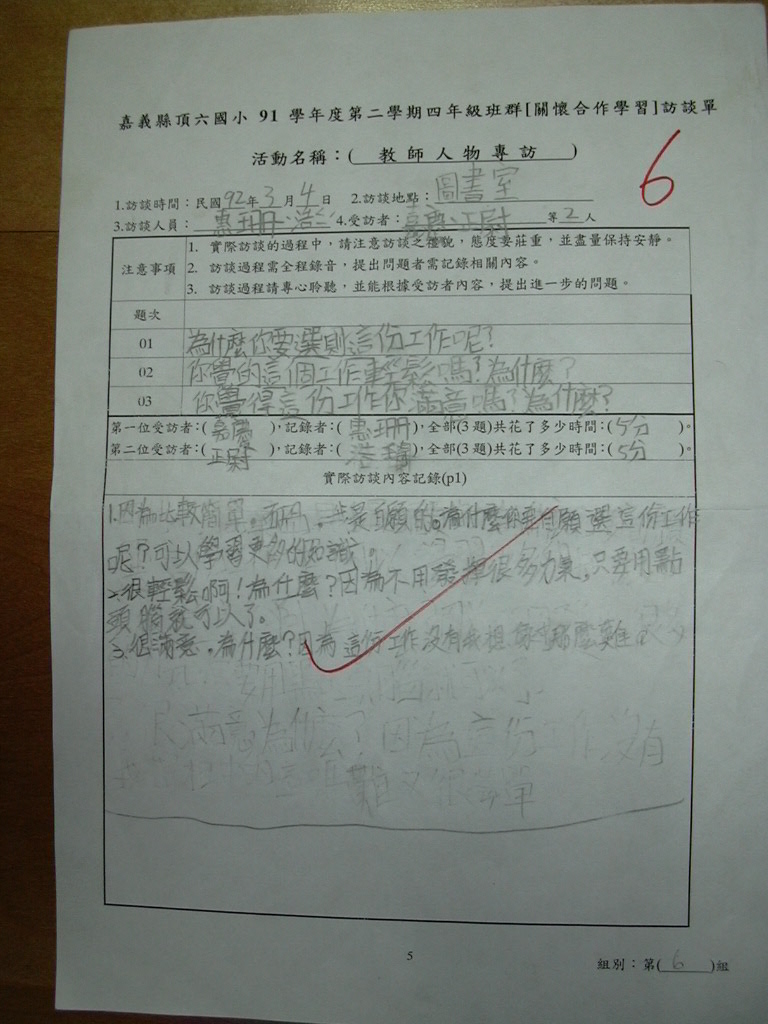 嘉義縣頂六國小 91 學年度第二學期四年級班群[關懷合作學習]訪談單
活動名稱：( 教師人物專訪 )
6
1.訪談時間：民國92年3月4日 2.訪談地點：圖書室
3.訪談人員：惠珊、浩 4.受訪者：嘉慶、正尉 等2人
注意事項
1. 實際訪談的過程中，請注意訪談之禮貌，態度要莊重，並盡量保持安靜。
2. 訪談過程需全程錄音，提出問題者需記錄相關內容。
3. 訪談過程請專心聆聽，並能根據受訪者內容，提出進一步的問題。
題次
01 為什麼你要選則這份工作呢？
02 你覺的這個工作輕鬆嗎？為什麼？
03 你覺得這份工作你滿意嗎？為什麼？
第一位受訪者：( 嘉慶 )，記錄者：( 惠珊 )，全部(3題)共花了多少時間：( 5分 )。
第二位受訪者：( 正尉 )，記錄者：( 浩瑋 )，全部(3題)共花了多少時間：( 5分 )。
實際訪談內容記錄(p1)
1.因為比較簡單。而且，也是自願的。為什麼你要自願選這份工作
呢？可以學習更多的知識。
2.很輕鬆啊！為什麼？因為不用發揮很多力氣，只要用點
頭腦就可以了。
3.很滿意，為什麼？因為這份工作沒有我想像中那麼難
滿意為什麼？因為這份工作沒有
難又很簡單
5
組別：第( 6 )組